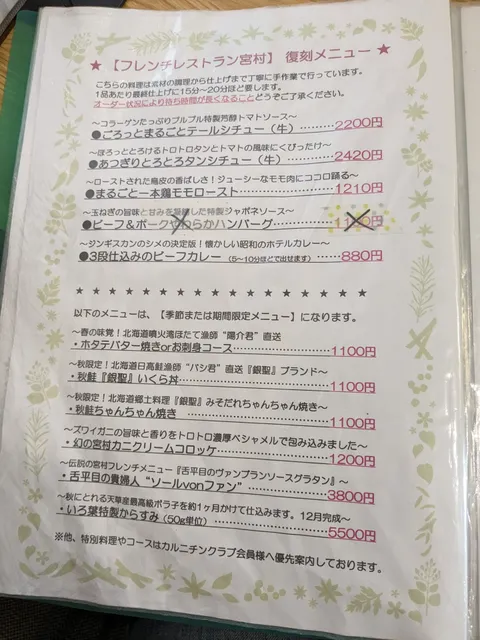 ★【フレンチレストラン宮村】 復刻メニュー★
こちらの料理は素材の調理から仕上げまで丁寧に手作業で行っています。
1品あたり最終仕上げに15分〜20分ほど要します。
オーダー状況により待ち時間が長くなることどうぞご了承ください。
〜コラーゲンたっぷりプルプル特製芳醇トマトソース〜
●ごろっとまるごとテールシチュー（牛）…………2200円
〜ほろっととろけるトロトロタンとトマトの風味にくびったけ〜
●あつぎりとろとろタンシチュー（牛）…………2420円
〜ローストされた鳥皮の香ばしさ！ジューシーなモモ肉にココロ踊る〜
●まるごと一本鶏モモロースト…………1210円
〜玉ねぎの旨味と甘みを凝縮した特製ジャポネソース〜
●ビーフ＆ポークやわらかハンバーグ…………
〜ジンギスカンのシメの決定版！懐かしい昭和のホテルカレー〜
●3段仕込みのビーフカレー（5〜10分ほどで出せます）……880円
★ ★ ★ ★ ★ ★ ★ ★ ★ ★ ★ ★ ★ ★ ★ ★ ★ ★
以下のメニューは、【季節または期間限定メニュー】になります。
〜春の味覚！北海道噴火湾ほたて漁師“陽介君”直送
・ホタテバター焼きorお刺身コース…………1100円
〜秋限定！北海道日高鮭漁師“バシ君”直送『銀聖』ブランド〜
・秋鮭『銀聖』いくら丼…………1100円
〜秋限定！北海道郷土料理『銀聖』みそだれちゃんちゃん焼き〜
・秋鮭ちゃんちゃん焼き …………1100円
〜ズワイガニの旨味と香りをトロトロ濃厚ベシャメルで包み込みました〜
・幻の宮村カニクリームコロッケ…………1200円
〜伝説の宮村フレンチメニュー『舌平目のヴァンブランソースグラタン』〜
・舌平目の貴婦人“ソールvonファン”…………3800円
〜秋にとれる天草産最高級ボラ子を約1ヶ月かけて仕込みます。12月完成〜
・いろ葉特製からすみ（50g単位）…………5500円
※他、特別料理やコースはカルニチンクラブ会員様へ優先案内しております。